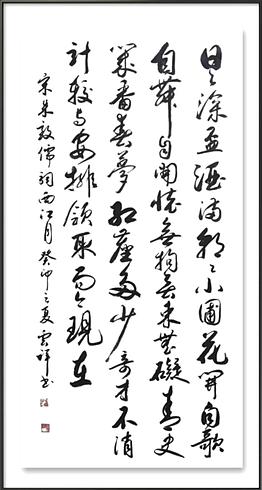 日々深盃酒滿朝々小圃花開自歌
自舞自開懷無拘無束無礙青史
幾番春夢紅塵多少奇才不消
計較与安排領取而今現在
宋朱敦儒詞西江月癸卯之夏雲祥書